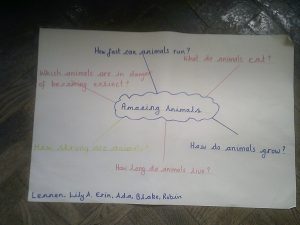 How fast can animals run?
What do animals eat?
Which animals are in danger
of becoming extinct?
Amazing Animals
How strong are animals?
How do animals grow?
How long do animals live?
Lennon, Lily A, Erin, Ada, Blake, Robin